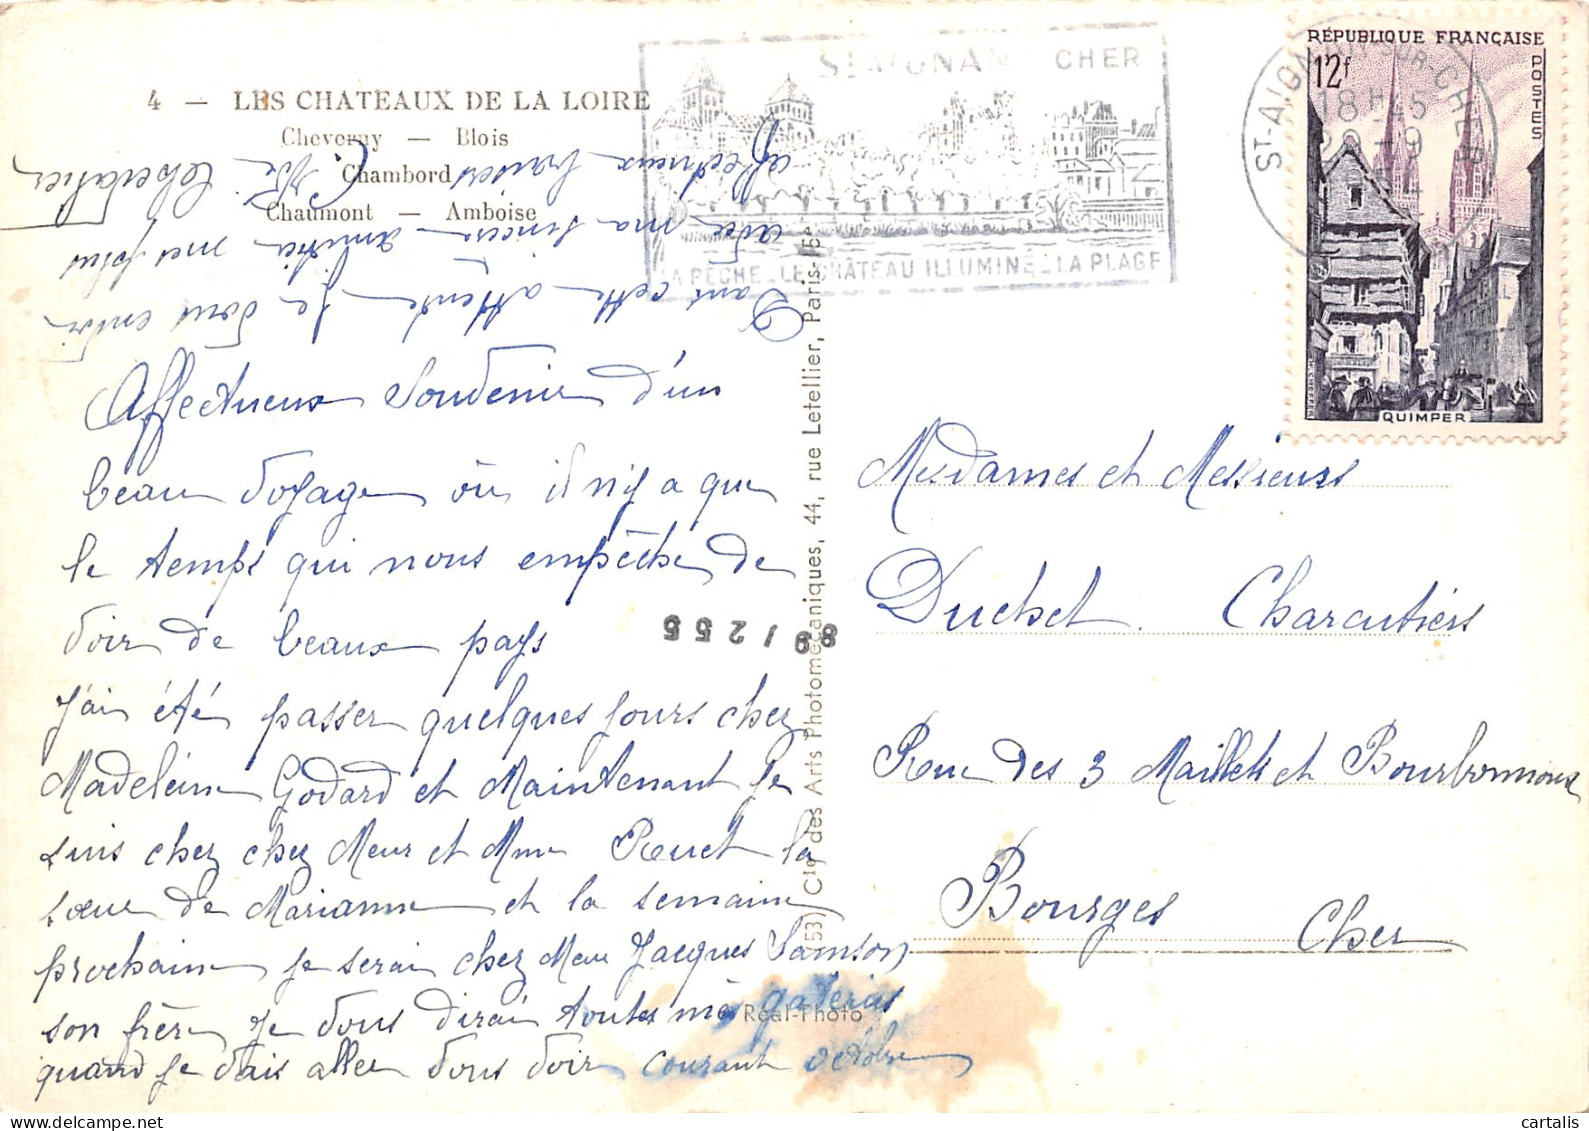 4 — LES CHATEAUX DE LA LOIRE
Cheverny — Blois
Chambord
Chaumont — Amboise
ST AIGNAN CHER
LA PÊCHE _ LE CHÂTEAU ILLUMINÉ _ LA PLAGE
ST-AIGNAN-SUR-CHER
18 H 45
RÉPUBLIQUE FRANÇAISE
12f
POSTES
QUIMPER
Affectueux Souvenir d'un
beau voyage où il n'y a que
le temps qui nous empêche de
voir de beaux pays
J'ai été passer quelques jours chez
Madeleine Godard et Maintenant je
suis chez chez Meur et Mme Rouet la
sœur de Marianne et la semaine
prochaine je serai chez Meur Jacques Samson
son frère je vous dirai toutes mes galeries
quand je vais aller vous voir courant octobre
Dans cette attente je vous envoi
avec ma sincère amitié mes plus
affectueux baisers
89/255
(53) Cie des Arts Photomécaniques, 44, rue Letellier, Paris-15e
Réal-Photo
Mesdames et Messieurs
Duchet Charcutiers
Rue des 3 Maillets et Bourbonnoux
Bourges
Cher